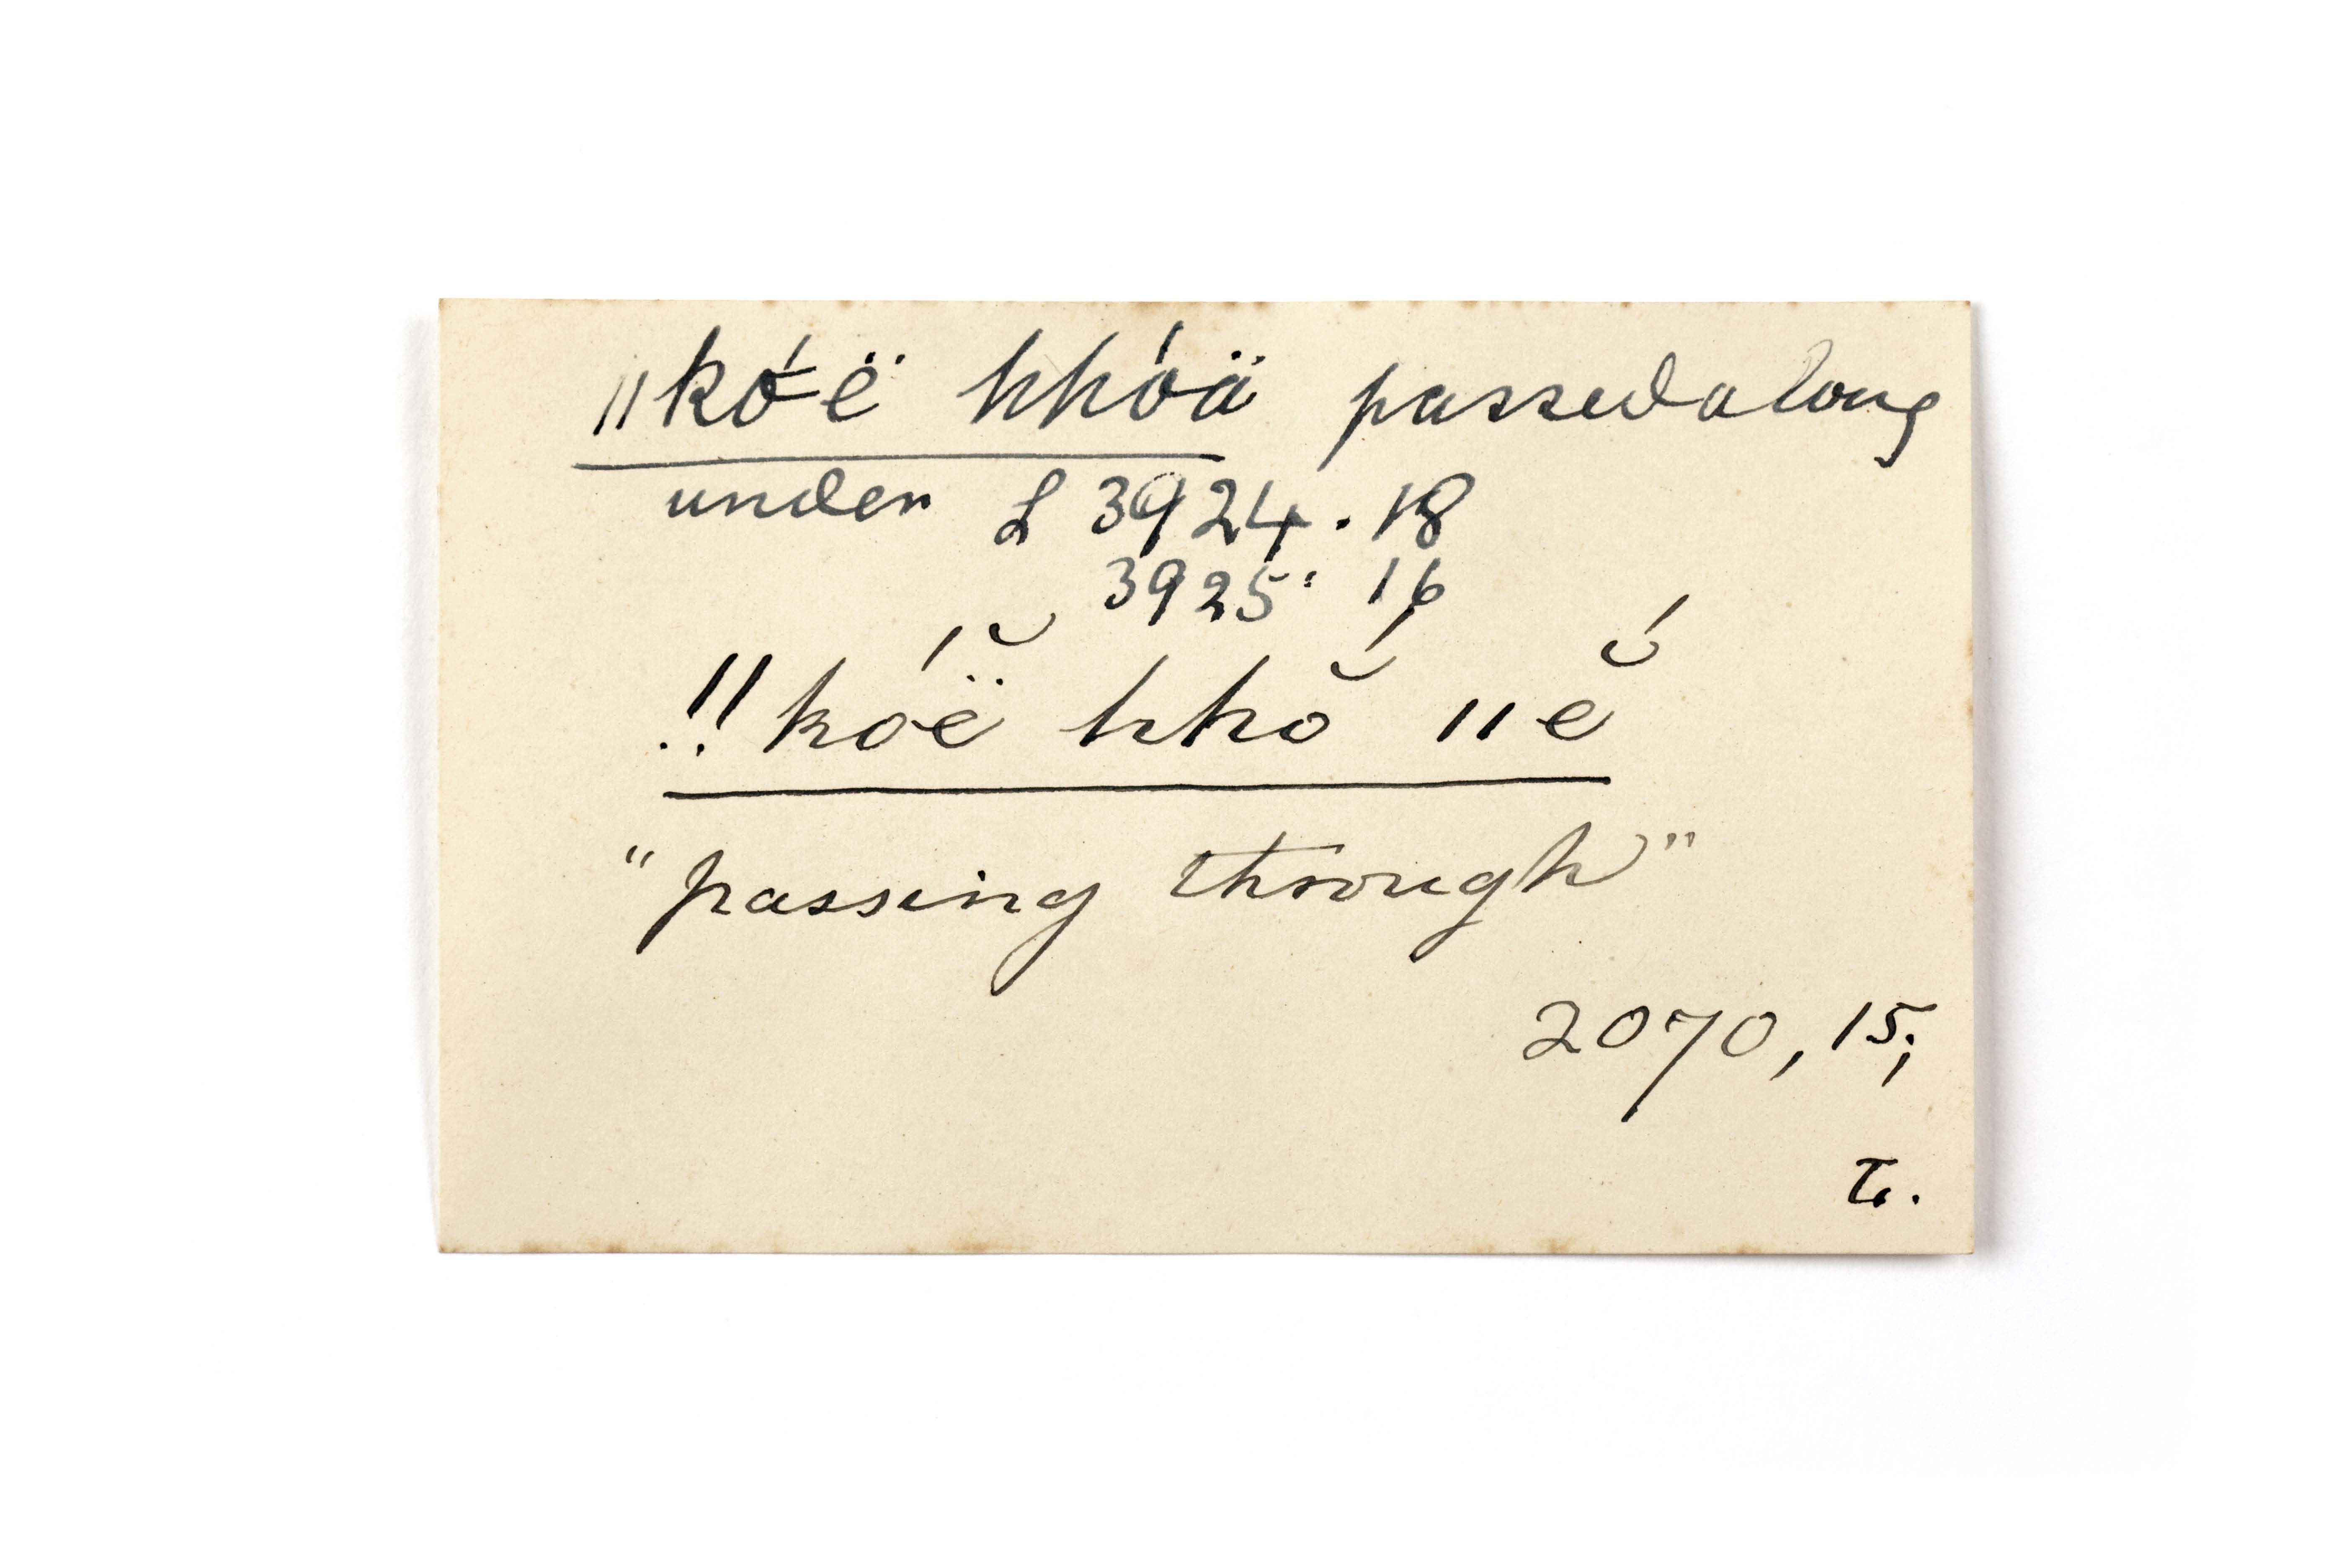 ǁkóë hhóä passed along
under L 3924.18
3925. 16
!!kóĕ̈ hhŏ́ ǁĕ́
"passing through"
2070, 15;